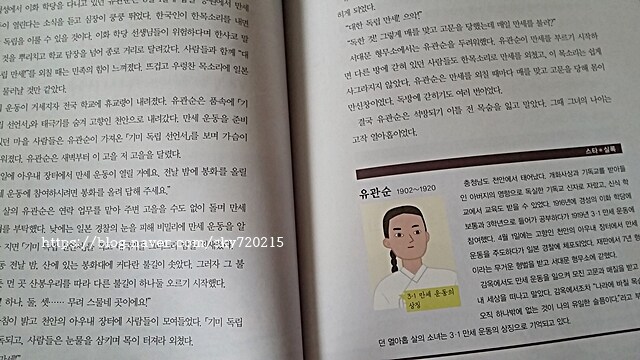 성에서 이화 학당 다니고 있던
열린다는 소식을 듣고 심장이 쿵쿵 뛰었다. 한국인이 한목소리를 내면
독립을 이룰 수 있을 것이다. 이화 학당 선생님들이 위험하다며 한사코 말
것을 뿌리치고 학교 담장을 넘어 종로 거리로 달려갔다. 사람들과 함께 “대
립 만세!”를 외칠 때는 민족의 힘이 느껴졌다. 뜨겁고 우렁찬 목소리에 일본
물러날 것만 같았다.
운동이 거세지자 전국 학교에 휴교령이 내려졌다. 유관순은 품속에 「기
립 선언서」와 태극기를 숨겨 고향인 천안으로 내려갔다. 만세 운동을 준비
있던 마을 사람들은 유관순이 가져온 「기미 독립 선언서」를 보며 가슴이
워졌다. 유관순은 새벽부터 이 고을 저 고을을 달렸다.
일에 아우내 장터에서 만세 운동이 열릴 거예요. 전날 밤에 봉화를 올릴
세 운동에 참여하시려면 봉화를 올려 답해 주세요.”
살의 유관순은 연락 업무를 맡아 주변 고을을 수도 없이 돌며 만세
를 부탁했다. 낮에는 일본 경찰의 눈을 피해 비밀리에 만세 운동을 알
지면 「기미
동 전날 밤, 산에 있는 봉화대에 커다란 불길이 솟았다. 그러자 그 불
먼 곳 산봉우리를 따라 다른 불길이 하나둘 오르기 시작했다.
하나, 둘, 셋…… 무려 스물네 곳이에요!”
아침이 밝고 천안의 아우내 장터에 사람들이 모여들었다. 「기미 독립
독되고, 사람들은 눈물을 삼키며 목이 터져라 외쳤다.
https://blog.naver.com/sky720215
히게 되었다.
“대한 독립 만세! 으악!”
“독한 것! 그렇게 매를 맞고 고문을 당했는데 매일 만세를 불러?”
서대문 형무소에서는 유관순을 두려워했다. 유관순이 만세를 부르기 시작하
면 다른 방에 갇혀 있던 사람들도 한목소리로 만세를 외쳤고, 이 목소리는 쉽게
사그라지지 않았다. 유관순은 만세를 외칠 때마다 매를 맞고 고문을 당해 몸이
만신창이였다. 독방에 갇히기도 여러 번이었다.
결국 유관순은 석방되기 이틀 전 목숨을 잃고 말았다. 그때 그녀의 나이는
고작 열아홉이었다.
스타★실록
유관순 1902~1920
3·1 만세 운동의
상징
충청남도 천안에서 태어났다. 개화사상과 기독교를 받아들
인 아버지의 영향으로 독실한 기독교 신자로 자랐고, 신식 학
교에서 교육도 받을 수 있었다. 1916년에 경성의 이화 학당에
보통과 3학년으로 들어가 공부하다가 1919년 3·1 만세 운동에
참여했다. 4월 1일에는 고향인 천안의 아우내 장터에서 만세
운동을 주도하다가 일본 경찰에 체포되었다. 재판에서 7년 형
이라는 무거운 형벌을 받고 서대문 형무소에 갇혔다.
감옥에서도 만세 운동을 일으켜 모진 고문과 매질을 받고
내 세상을 떠나고 말았다. 감옥에서조차 “나라에 바칠 목숨이
오직 하나밖에 없는 것이 나의 유일한 슬픔이다.”라고
던 열아홉 살의 소녀는 3·1 만세 운동의 상징으로 기억되고 있다.